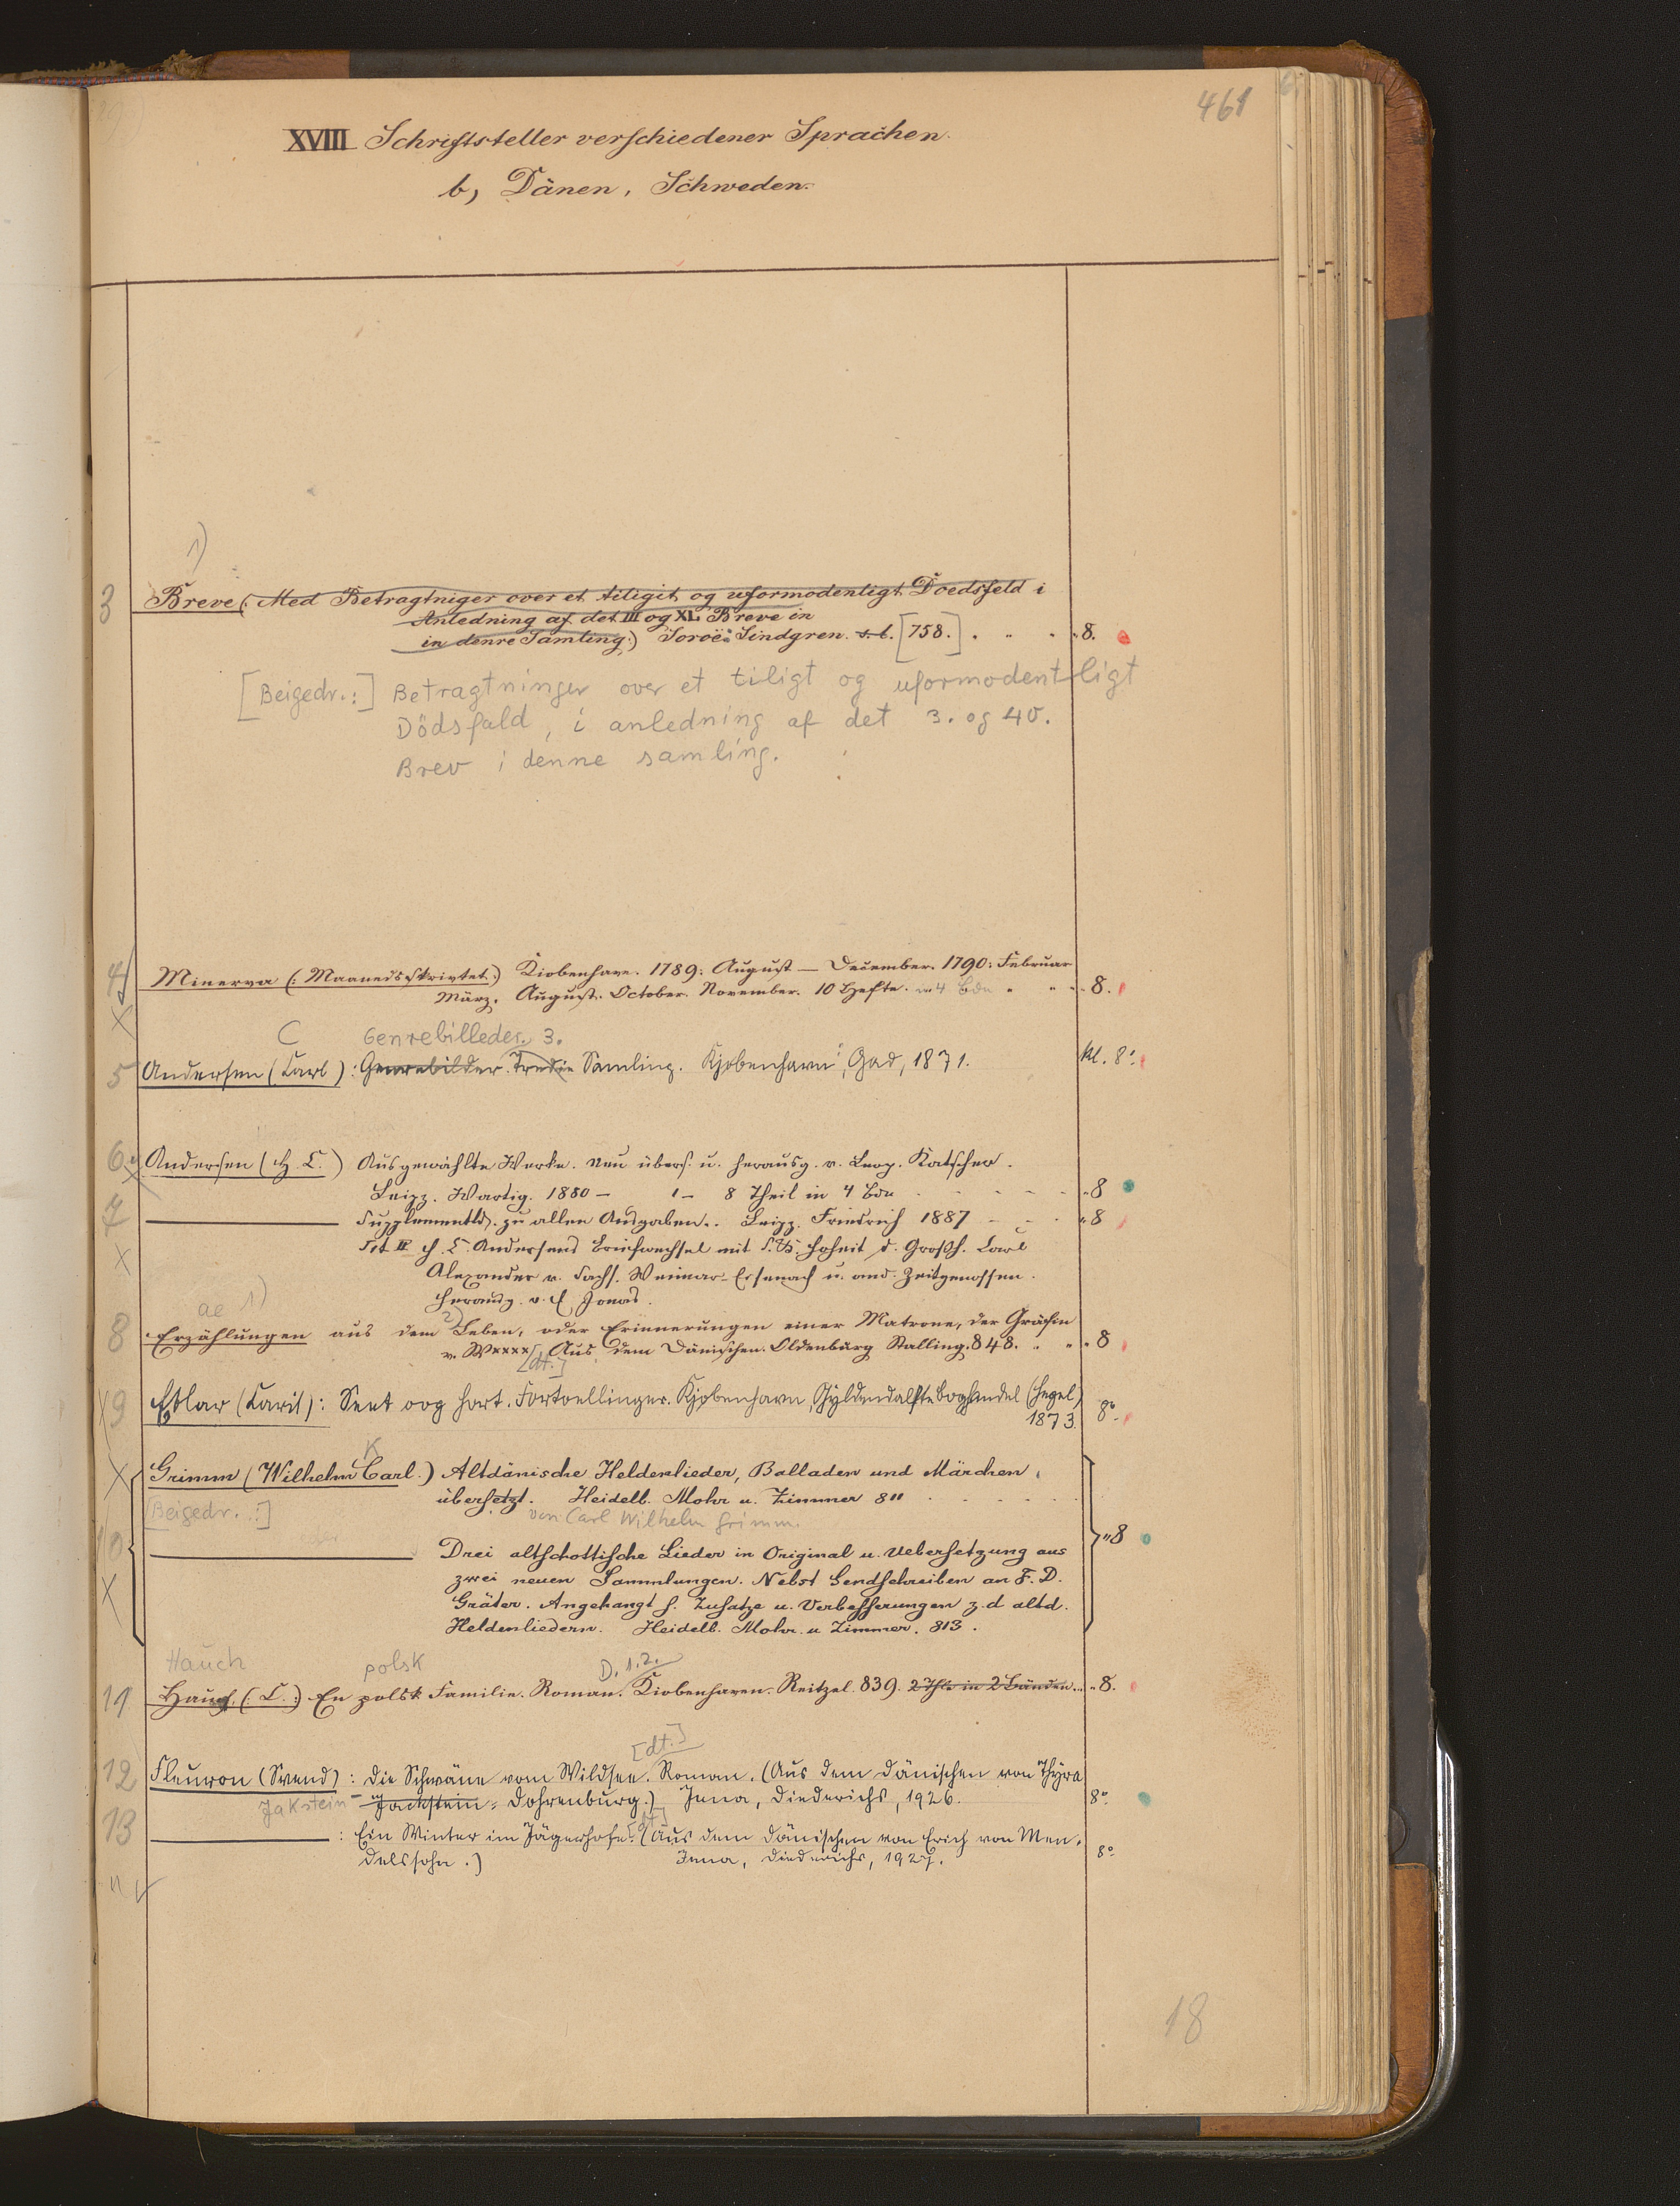 461
XVIII Schriftsteller verschiedener Sprachen.
b, Dänen, Schweden.
1)
3 Breve (: Med Betragtniger over et tiligit og uformodentligt Doedsfeld i
Anledning af det III og XL Breve in
in denre Samling.) Soroë: Lindgren. s. l. [758.] „ 8.
[Beigedr.:] Betragtninger over et tiligt og uformodentligt
Dödsfald, i anledning af det 3. og 40.
Brev i denne samling.
4 Minerva (: Maanedsskrivtet.) Kiobenhavn. 1789: August — December. 1790: Februar
März. August. October. November. 10 Hefte. in 4 Bdn „ 8.
C Genrebilleder. 3.
5 Andersen (Carl): Genrebilder. Tredie Samling. Kjobenhavn, Gad, 1871. kl. 8°
6 Andersen (H. C.) Ausgewählte Werke. Neu übers. u. herausg. v. Leop. Katscher.
Leipz. Wartig. 1880 — 1 – 8 Theil in 4 Bdn „ 8
7 — Supplementbd. zu allen Ausgaben. Leipz. Friedrich 1887 „ 8
Tit II H. C. Andersens Briefwechsel mit S. K. Hoheit d. Großh. Carl
Alexander v. Sachs. Weimar-Eisenach u. and. Zeitgenossen.
Herausg. v. E. Jonas.
ae 1) 2)
8 Erzählungen aus dem Leben, oder Erinnerungen einer Matrone, der Gräfin
v. W××××. Aus dem Dänischen. Oldenburg Stalling. 848. „ 8
[dt.]
9 Etlar (Carit): Sent oog hart. Fortoellinger. Kjobenhavn, Gyldendalske Boghandel (Hegel)
1873. 8°
K
Grimm (Wilhelm Carl.) Altdänische Heldenlieder, Balladen und Märchen,
übersetzt. Heidelb. Mohr u. Zimmer 811
[Beigedr.:] von Carl Wilhelm Grimm.
10 — Drei altschottische Lieder in Original u. Uebersetzung aus „ 8
zwei neuen Sammlungen. Nebst Sendschreiben an F. D.
Gräter. Angehangt s. Zusatze u. Verbesserungen z. d altd.
Heldenliedern. Heidelb. Mohr. u Zimmer. 813.
Hauch polsk D. 1. 2.
11 Hauch (: C. :) En polsk Familie. Roman. Kiobenhaven. Reitzel. 839. 2 Thle in 2 Bänden. „ 8.
[dt.]
12 Fleuron (Svend): Die Schwäne vom Wildsee. Roman. (Aus dem Dänischen von Thyra
Jakstein- Jackstein-Dohrenburg.) Jena, Diederichs, 1926. 8°
13 — : Ein Winter im Jägerhofe. (Aus dem Dänischen von Erich von Men-
delssohn.) Jena, Diederichs, 1927. 8°
18